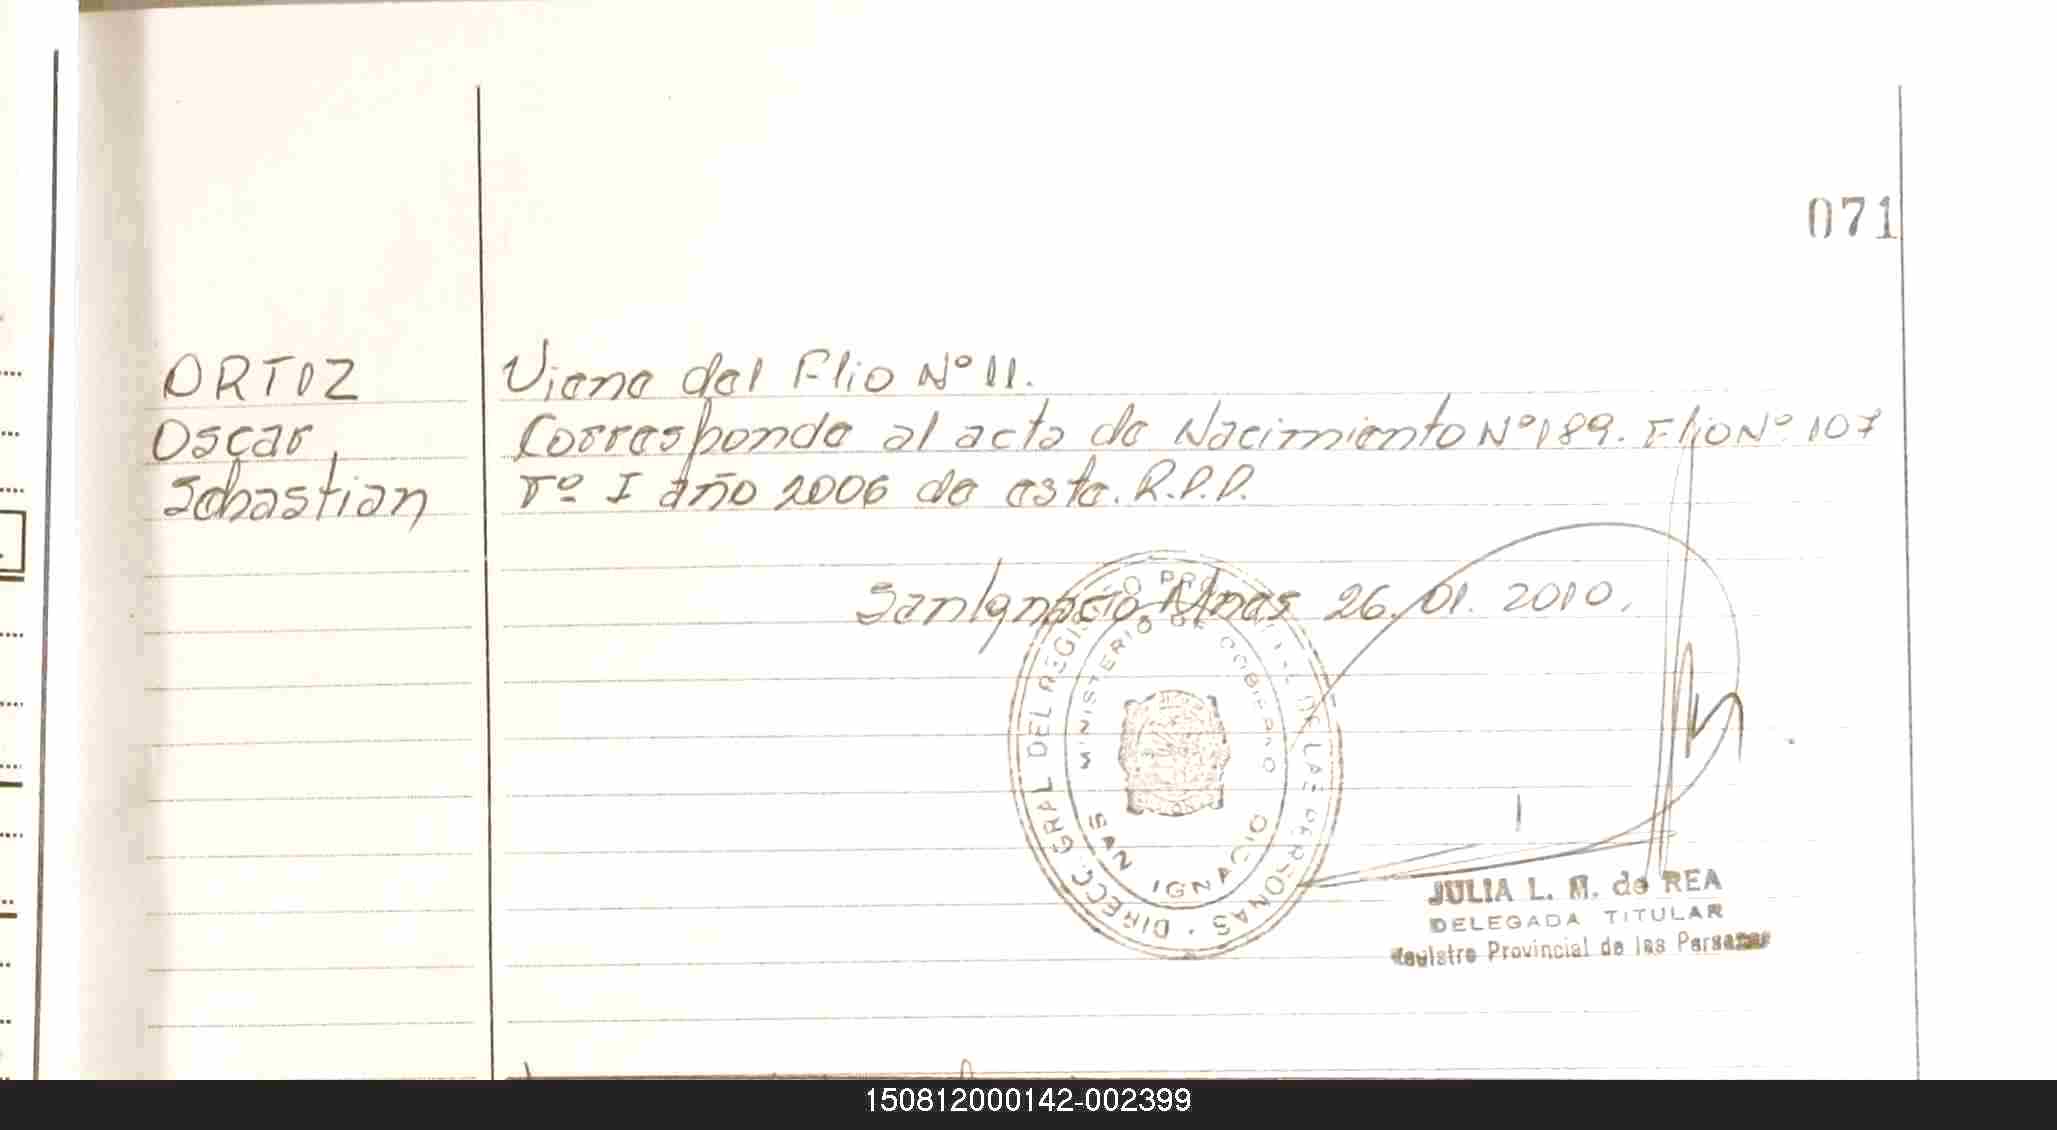 071
ORTIZ
Oscar
Sebastian
Viene del Flio Nº 11.
Corresponde al acta de Nacimiento Nº 189. Flio Nº 107
Tº I año 2006 de este. R.P.P.
San Ignacio Mnes 26.01.2010.
DIRECC. GRAL DEL REGISTRO PROVINCIAL DE LAS PERSONAS
MINISTERIO DE GOBIERNO
SAN IGNACIO
JULIA L. M. de REA
DELEGADA TITULAR
Registro Provincial de las Personas
150812000142-002399